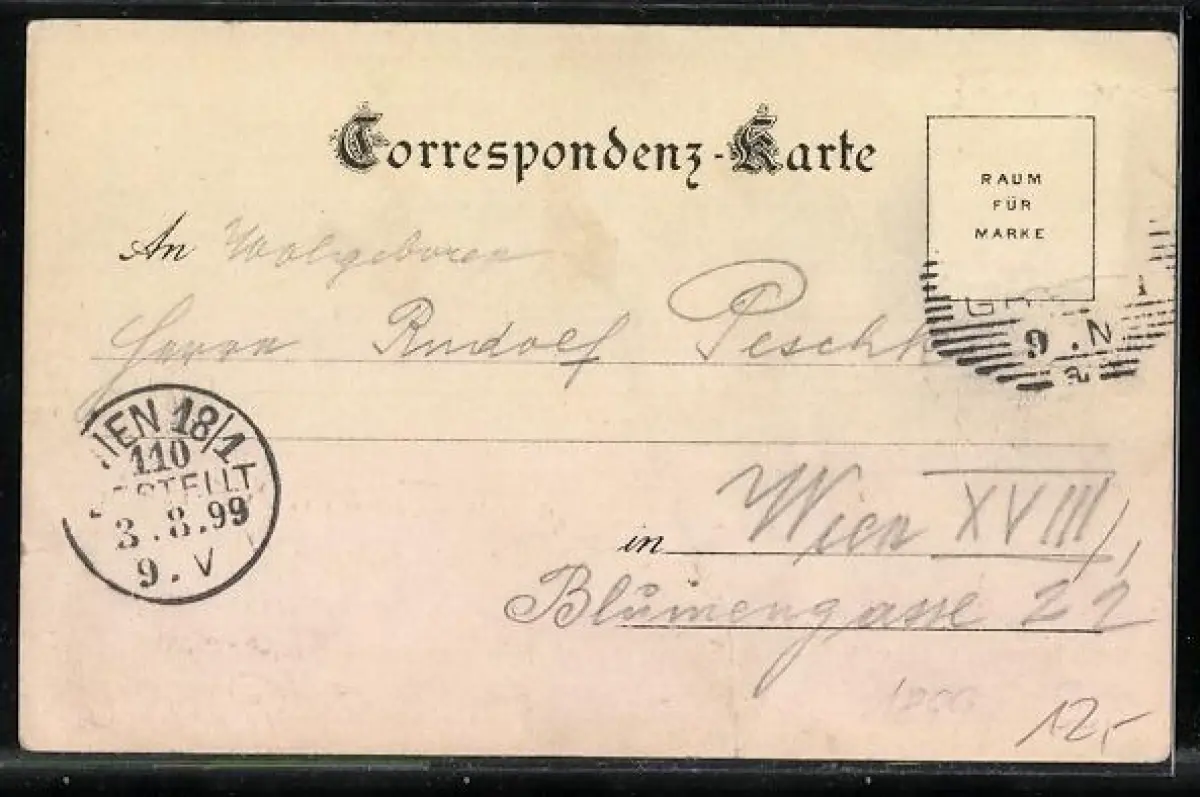 Correspondenz-Karte
RAUM
FÜR
MARKE
An Wolgeboren
Herrn Rudolf Peschk
9 . N
WIEN 18/1
110
BESTELLT
3.8.99
9.V
in Wien XVIII/1,
Blumengasse 22
1200
12,-